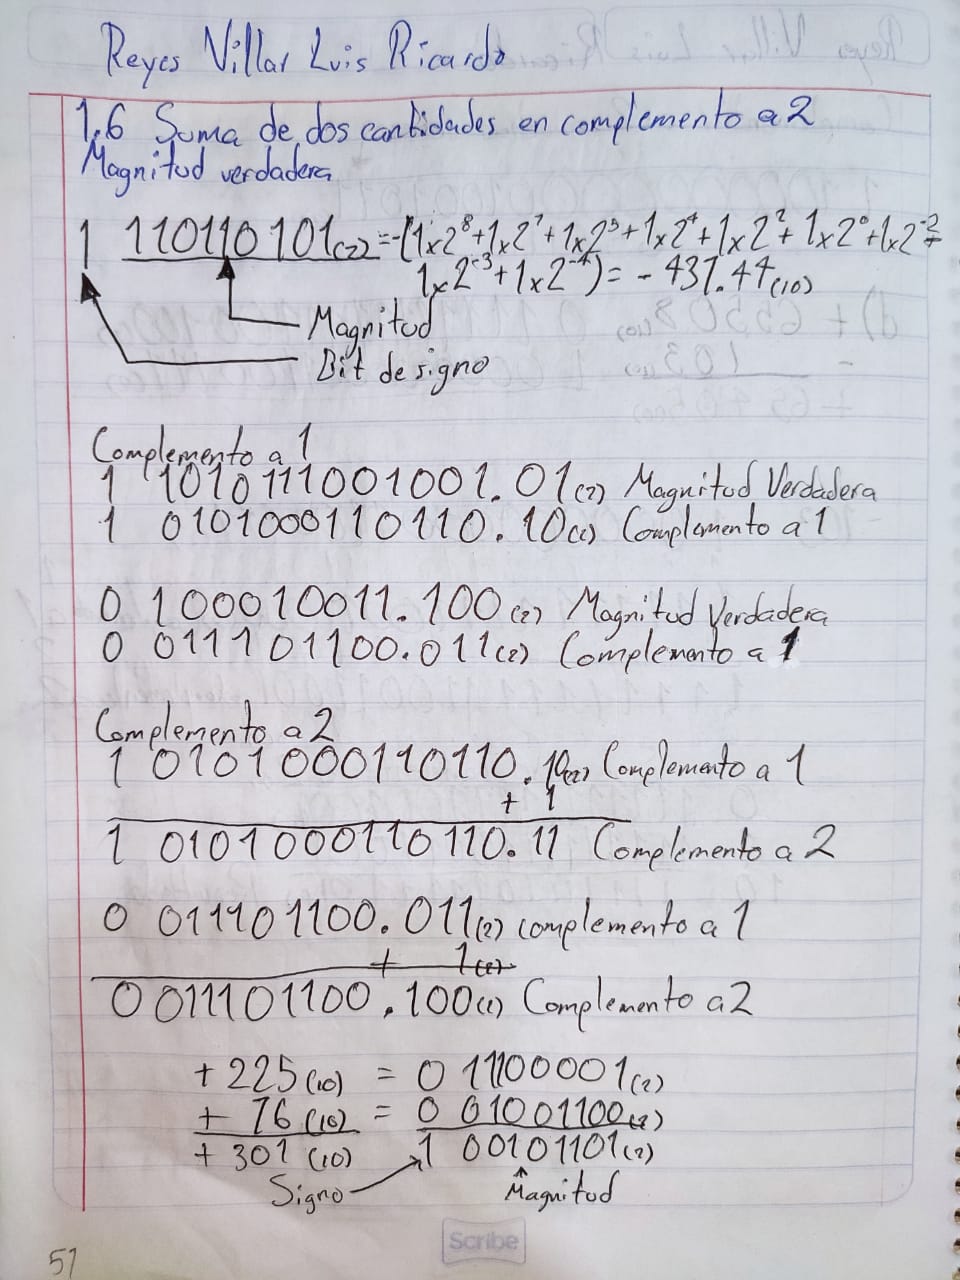 Reyes Villar Luis Ricardo
1.6 Suma de dos cantidades en complemento a 2
Magnitud verdadera
1 110110101(2)=-(1x2^8+1x2^7+1x2^5+1x2^4+1x2^2+1x2^0+1x2^-2+
1x2^-3+1x2^-4)= - 437.44(10)
Magnitud
Bit de signo
Complemento a 1
1 1010111001001.01(2) Magnitud Verdadera
1 0101000110110.10(2) Complemento a 1
0 100010011.100(2) Magnitud Verdadera
0 011101100.011(2) Complemento a 1
Complemento a 2
1 0101000110110.10(2) Complemento a 1
+ 1
1 0101000110110.11 Complemento a 2
0 011101100.011(2) complemento a 1
+ 1(2)
0 011101100.100(2) Complemento a 2
+ 225(10) = 0 11100001(2)
+ 76(10) = 0 01001100(2)
+ 301(10) 1 00101101(2)
Signo Magnitud
Scribe
51